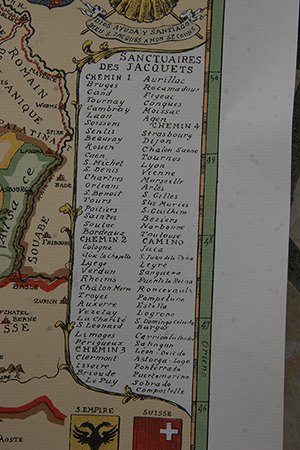 DIOS AYUDA Y SANTIAGO
DIEU S. JACQUES A MON SECOURS
SANCTUAIRES
DES JACQUETS
CHEMIN 1
Bruges
Gand
Tournay
Cambray
Laon
Soissons
Senlis
Beauvay
Rouen
Caen
S. Michel
S. Denis
Chartres
Orleans
S. Benoit
Tours
Poitiers
Saintes
Soulac
Bordeaux
CHEMIN 2
Cologne
Aix la Chapelle
Liege
Verdun
Rheims
Chalon Marn
Troyes
Auxerre
Vezelay
La Charité
S. Leonard
Limoges
Périgueux
CHEMIN 3
Clermont
Issoire
Brioude
Le Puy
Aurillac
Rocamadour
Figeac
Conques
Moissac
Agen
CHEMIN 4
Strasbourg
Dijon
Chalon Saone
Tournus
Lyon
Vienne
Marseille
Arles
S. Gilles
Stes Maries
S. Guilhem
Beziers
Narbonne
Toulouse
CAMINO
Jaca
S. Juan de la Peña
Leyre
Sanguera
Puente la Reina
Roncevaux
Pampelune
Estella
Logrono
S. Domingo
Burgos
Carrion
Sahagun
Leon - Oviedo
Astorga - Lugo
Ponferrada
Puertomarino
Sobrado
Compostelle
ROMAIN
SPIRE
BADE
SOUABE
FRIBOURG
BASLE
ZURICH
BERNE
SSE
AOSTE
50
49
48
47
46
Oriens
S. EMPIRE
SUISSE